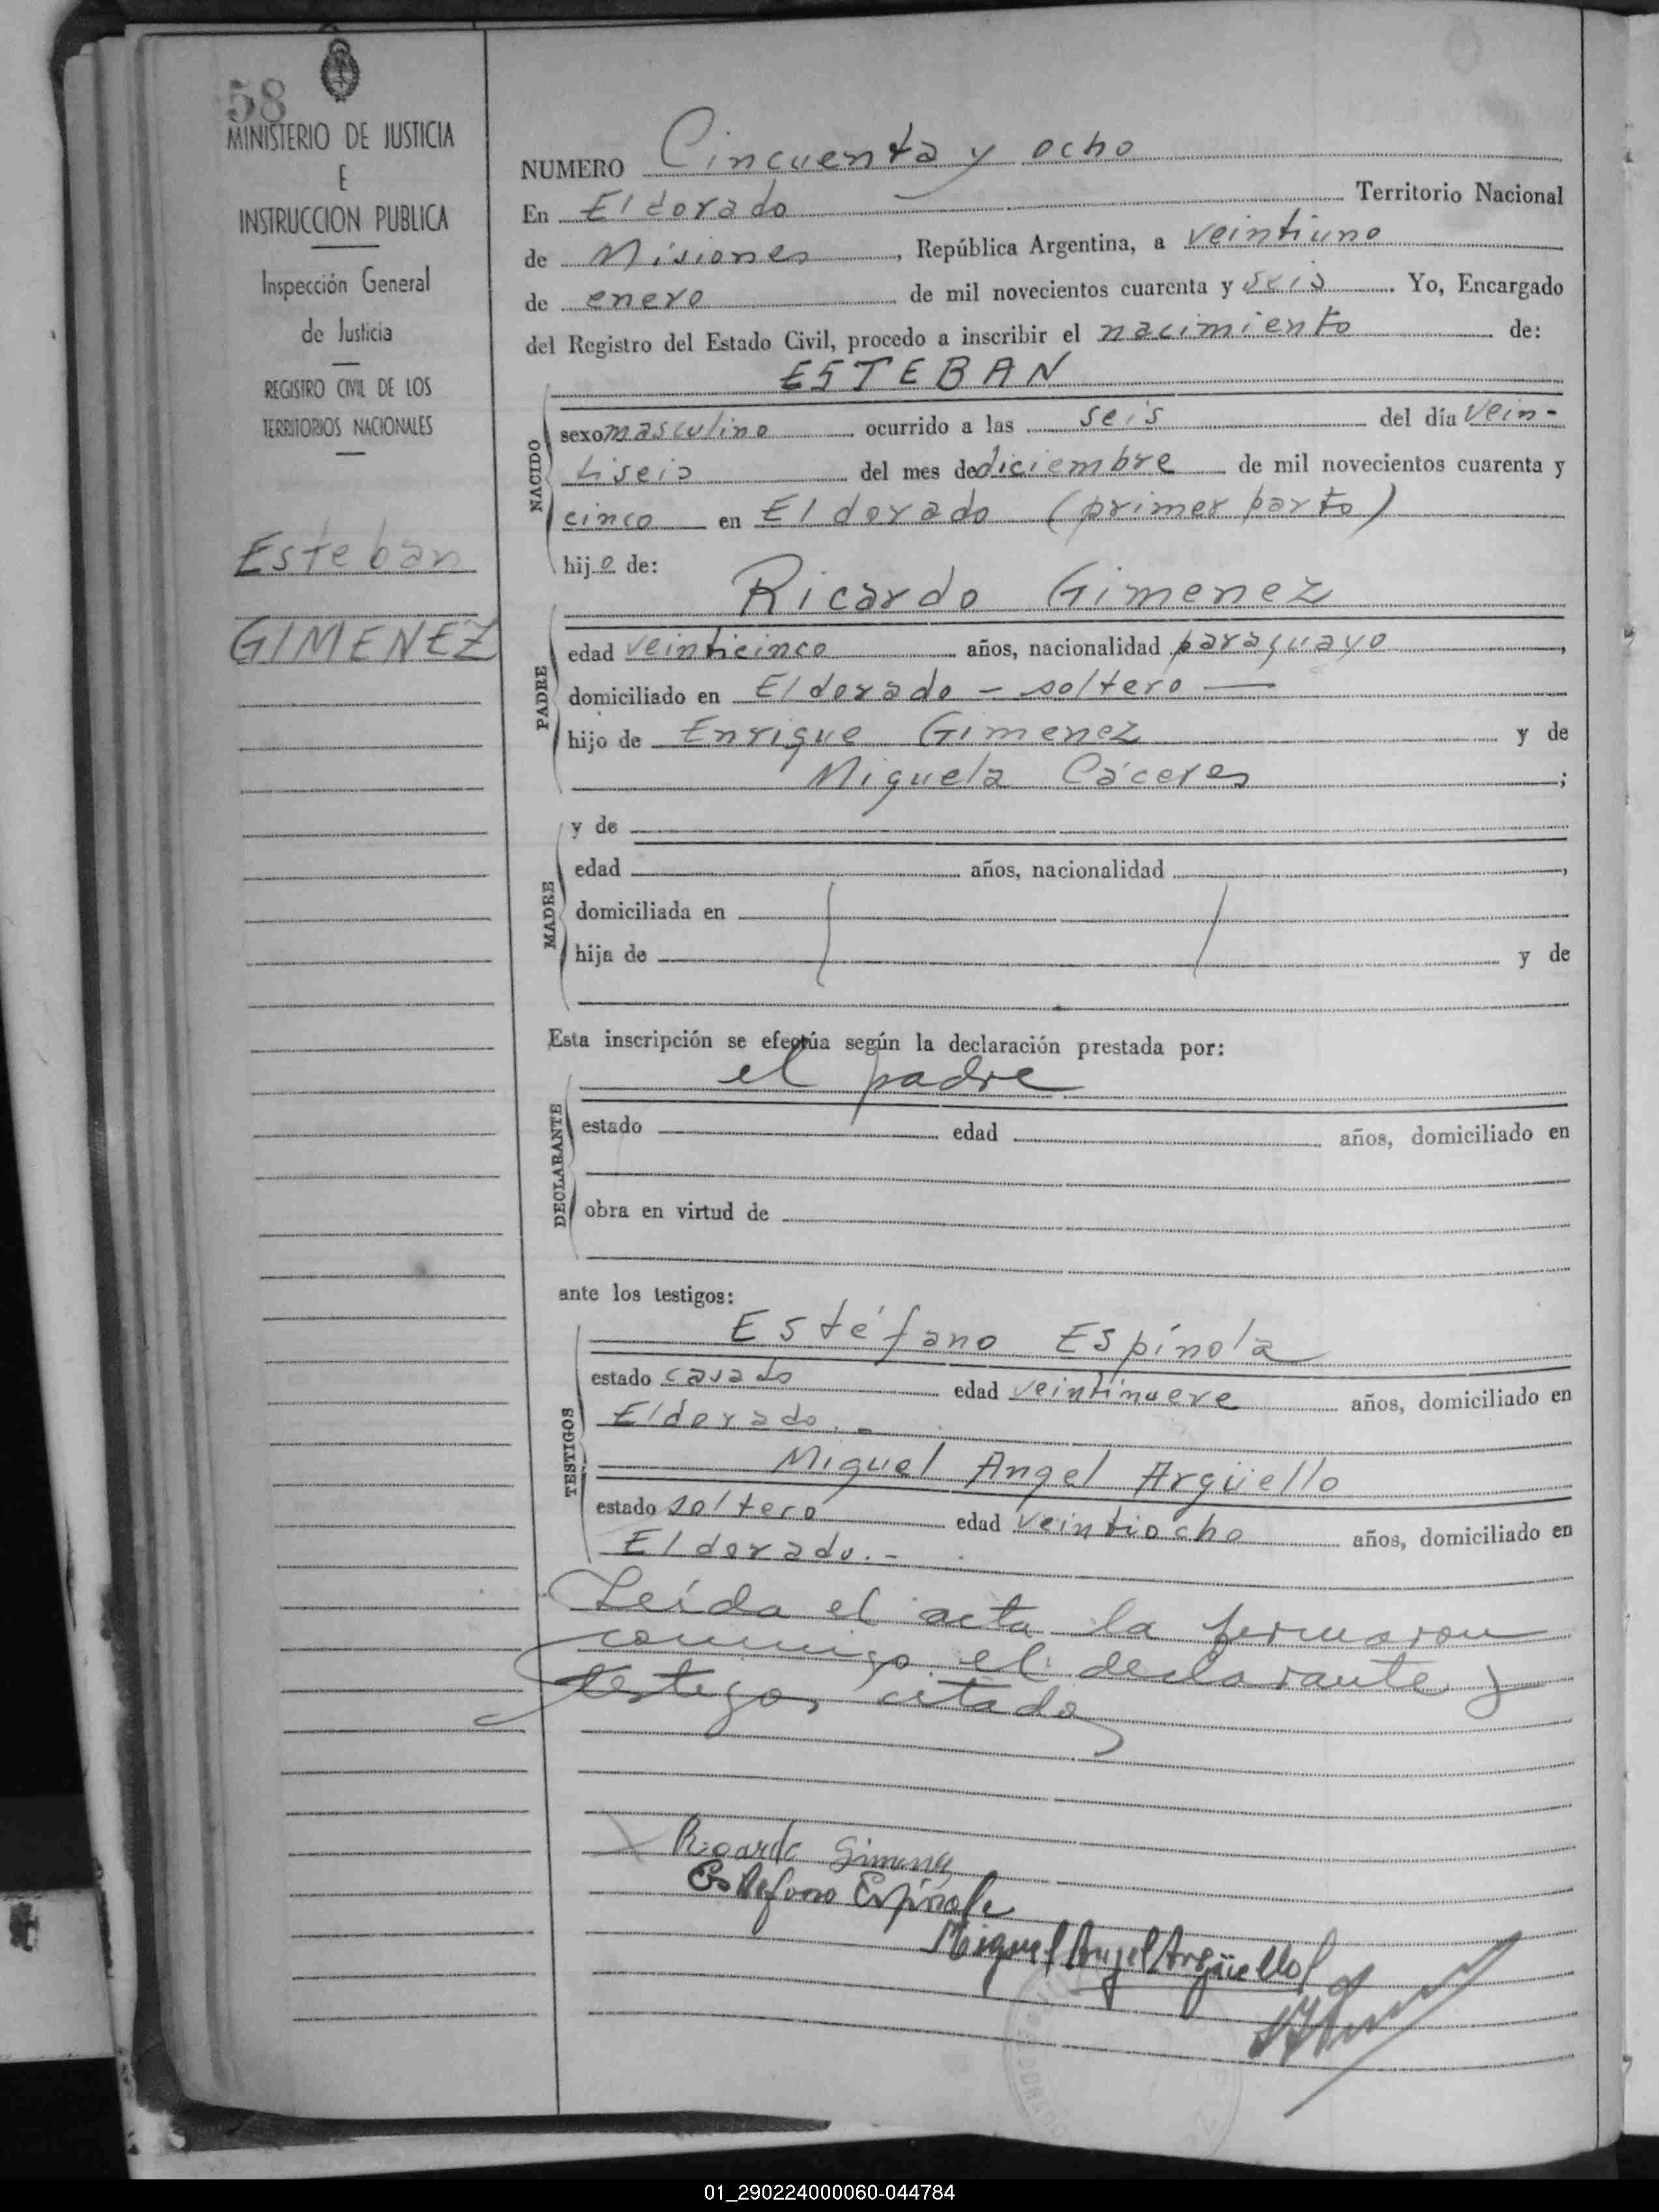 58
MINISTERIO DE JUSTICIA
E
INSTRUCCION PUBLICA
Inspección General
de Justicia
REGISTRO CIVIL DE LOS
TERRITORIOS NACIONALES
Esteban
GIMENEZ
NUMERO Cincuenta y ocho
En Eldorado Territorio Nacional
de Misiones, República Argentina, a veintiuno
de enero de mil novecientos cuarenta y seis. Yo, Encargado
del Registro del Estado Civil, procedo a inscribir el nacimiento de:
ESTEBAN
NACIDO
sexo masculino ocurrido a las seis del día vein-
tiseis del mes de diciembre de mil novecientos cuarenta y
cinco en Eldorado (primer parto)
hijo de:
Ricardo Gimenez
PADRE
edad veinticinco años, nacionalidad paraguayo,
domiciliado en Eldorado - soltero —
hijo de Enrique Gimenez y de
Miguela Cáceres;
MADRE
y de
edad años, nacionalidad,
domiciliada en
hija de y de
Esta inscripción se efectúa según la declaración prestada por:
el padre
DECLARANTE
estado edad años, domiciliado en
obra en virtud de
ante los testigos:
TESTIGOS
Estéfano Espínola
estado casado edad veintinueve años, domiciliado en
Eldorado.-
Miguel Angel Argüello
estado soltero edad veintiocho años, domiciliado en
Eldorado.-
Leída el acta la firmaron
conmigo el declarante y
testigos citados
Ricardo Gimenez
Estefano Espínola
Miguel Angel Argüello
01_290224000060-044784